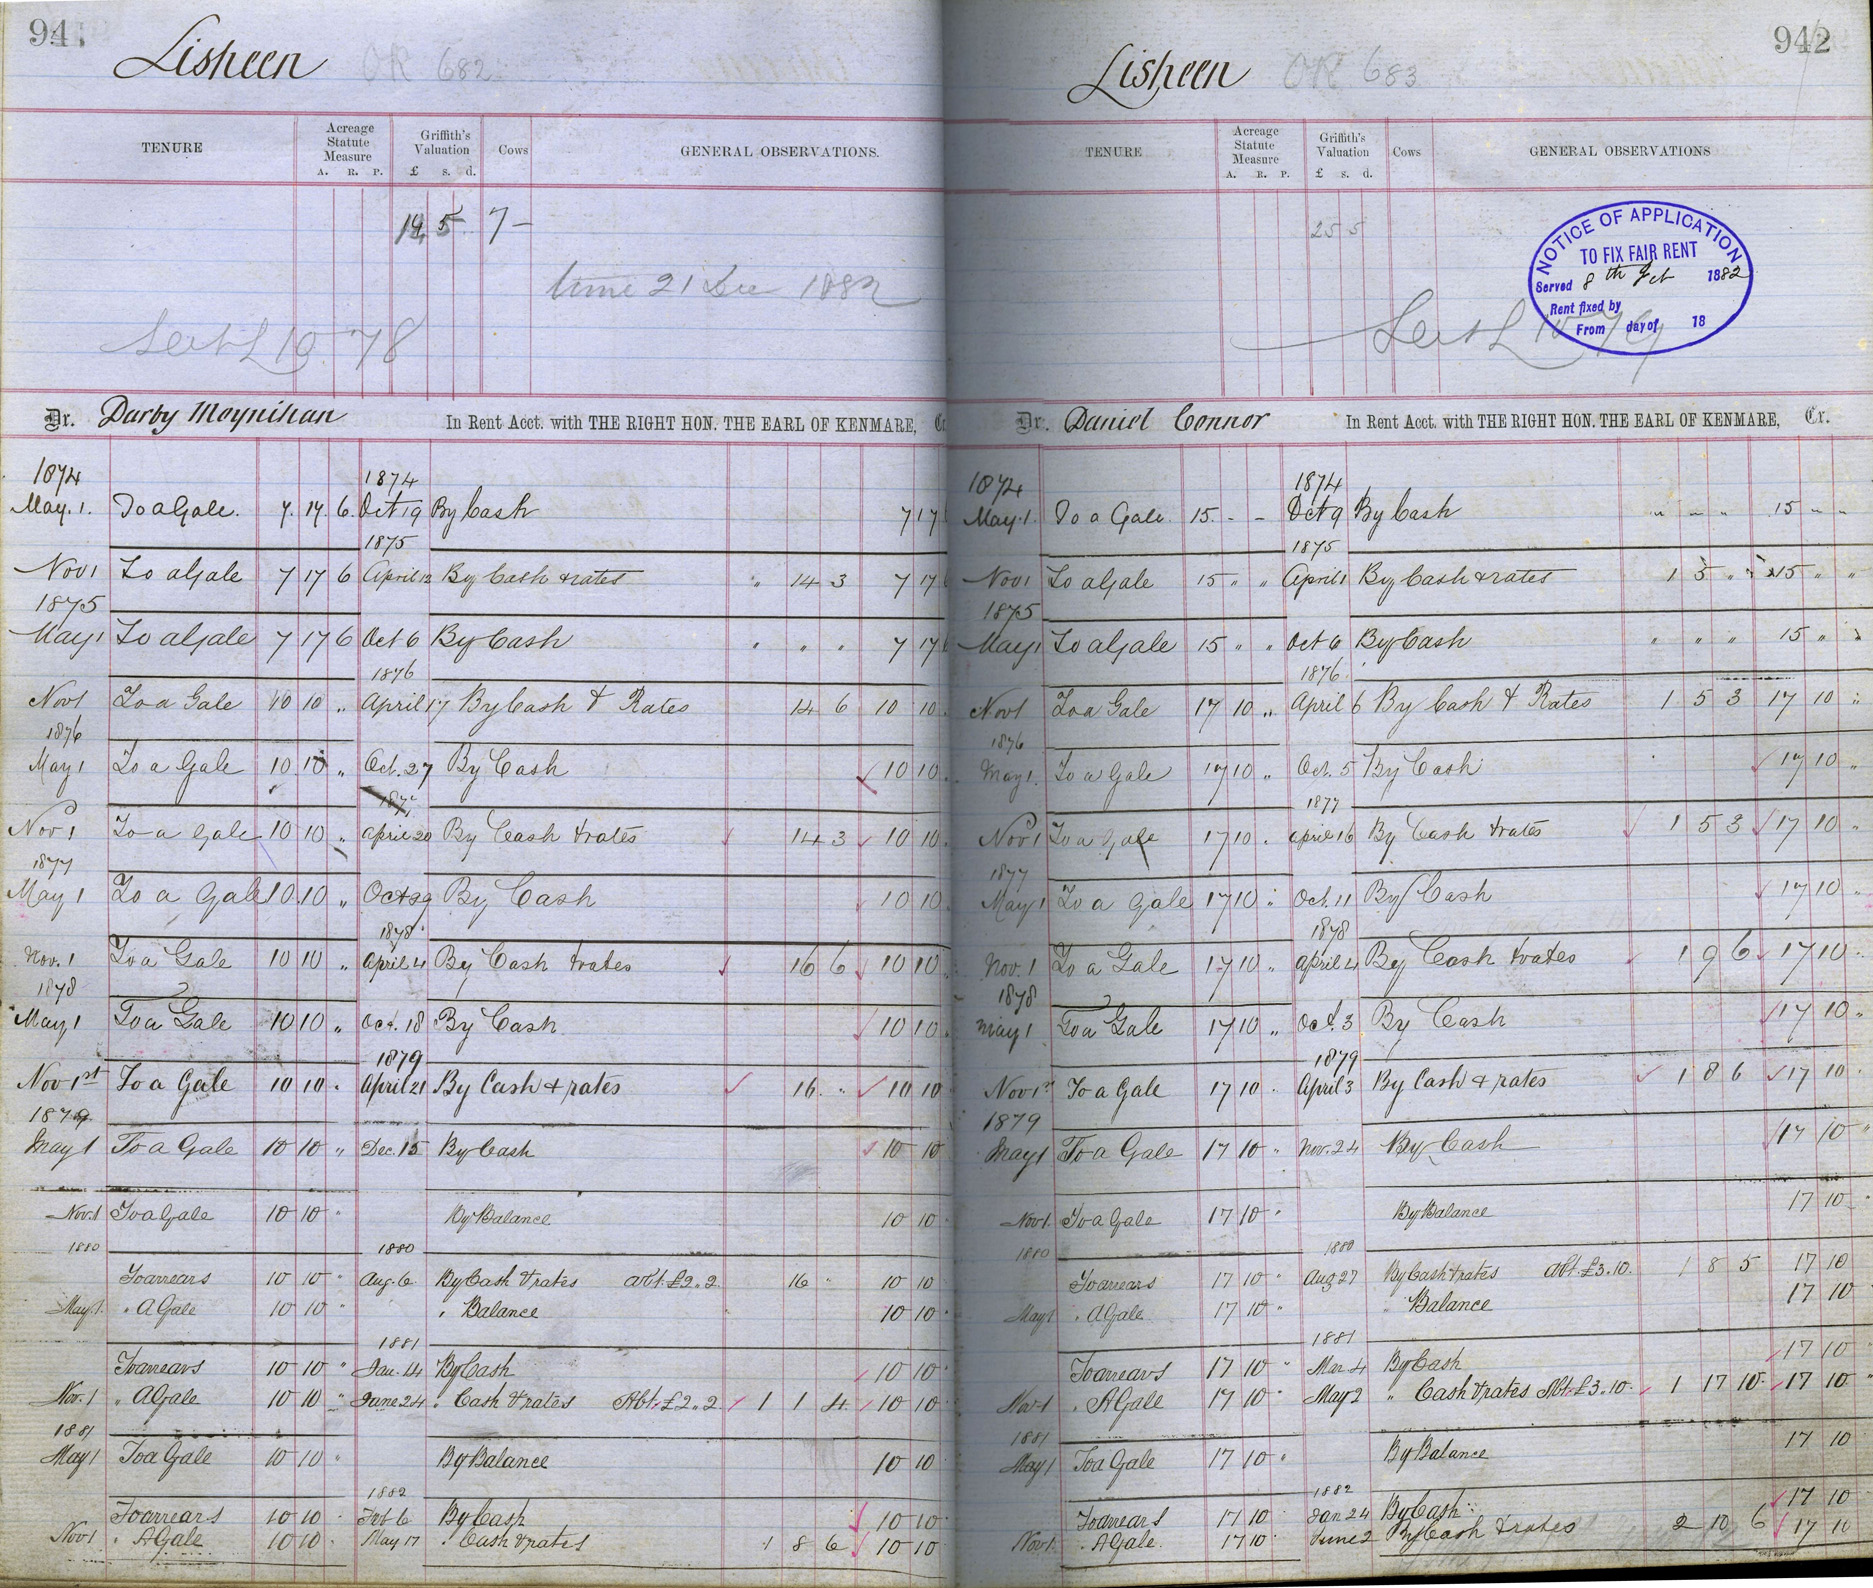 941
Lisheen OR 682
TENURE Acreage Statute Measure A. R. P. Griffith's Valuation £ s. d. Cows GENERAL OBSERVATIONS.
5 7 –
21 Dec 1882
10 78
Dr. Darby Moynihan In Rent Acct. with THE RIGHT HON. THE EARL OF KENMARE, Cr
1874 1874
May. 1. To a Gale. 7. 17. 6. Oct 19 By Cash 7 17
1875
Nov 1 To a Gale 7 17 6 April 12 By Cash & rates " 14 3 7 17 6
1875
May 1 To a Gale 7 17 6 Oct 6 By Cash " " " 7 17 6
1876
Nov 1 To a Gale 10 10 " April 17 By Cash & Rates 14 6 10 10
1876
May 1 To a Gale 10 10 " Oct. 27 By Cash 10 10
1877
Nov 1 To a Gale 10 10 " April 20 By Cash & rates 14 3 10 10
1877
May 1 To a Gale 10 10 " Oct 29 By Cash 10 10
1878
Nov. 1 To a Gale 10 10 " April 4 By Cash & rates 16 6 10 10
1878
May 1 To a Gale 10 10 " Oct. 18 By Cash 10 10
1879
Nov 1st To a Gale 10 10 " April 21 By Cash & rates 16 " 10 10
1879
May 1 To a Gale 10 10 " Dec. 15 By Cash 10 10
Nov. 1 To a Gale 10 10 " By Balance 10 10
1880 1880
To arrears 10 10 " Aug. 6 By Cash & rates Abt. £2..2 16 " 10 10
May 1. " A Gale 10 10 " " Balance 10 10
1881
To arrears 10 10 " Jan. 14 By Cash 10 10
Nov. 1 " A Gale 10 10 " June 24 " Cash & rates Abt. £2..2 1 1 4 10 10
1881
May 1 To a Gale 10 10 " By Balance 10 10
1882
To arrears 10 10 Feb 6 By Cash 10 10
Nov 1 " A Gale 10 10 May 17 " Cash & rates 1 8 6 10 10
942
Lisheen OR 683
TENURE Acreage Statute Measure A. R. P. Griffith's Valuation £ s. d. Cows GENERAL OBSERVATIONS
25 5
NOTICE OF APPLICATION
TO FIX FAIR RENT
Served 8th Feb 1882
Rent fixed by
From day of 18
Dr. Daniel Connor In Rent Acct. with THE RIGHT HON. THE EARL OF KENMARE, Cr.
1874 1874
May. 1 To a Gale. 15. - - Oct 9 By Cash " " " 15 " "
1875
Nov 1 To a Gale 15 " " April 1 By Cash & rates 1 5 " 15 " "
1875
May 1 To a Gale 15 " " Oct 6 By Cash " " " 15 " "
1876
Nov 1 To a Gale 17 10 " April 6 By Cash & Rates 1 5 3 17 10 "
1876
May 1. To a Gale 17 10 " Oct. 5 By Cash 17 10 "
1877
Nov 1 To a Gale 17 10 . April 16 By Cash & rates 1 5 3 17 10 "
1877
May 1 To a Gale 17 10 " Oct. 11 By Cash 17 10 "
1878
Nov. 1 To a Gale 17 10 " April 4 By Cash & rates 1 9 6 17 10 "
1878
May 1 To a Gale 17 10 " Oct. 3 By Cash 17 10 "
1879
Nov 1st To a Gale 17 10 . April 3 By Cash & rates 1 8 6 17 10 .
1879
May 1 To a Gale 17 10 " Nov. 24 By Cash 17 10 "
Nov 1. To a Gale 17 10 " By Balance 17 10
1880 1880
To arrears 17 10 " Aug 27 By Cash & rates Abt. £3.10. 1 8 5 17 10
May 1 " A Gale 17 10 " " Balance 17 10
1881
To arrears 17 10 " Mar. 4 By Cash 17 10 "
Nov 1 " A Gale 17 10 " May 2 " Cash & rates Abt. £3..10. 1 17 10 17 10 "
1881
May 1 To a Gale 17 10 " By Balance 17 10
1882
To arrears 17 10 Jan 24 By Cash 17 10
Nov 1. " A Gale. 17 10 June 2 By Cash & rates 2 10 6 17 10